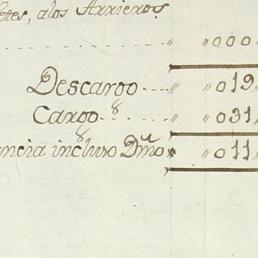 etes, alos Arrieros
" "000
Descargo " "019
Cargos " "031
ancia incluso Dmo "011